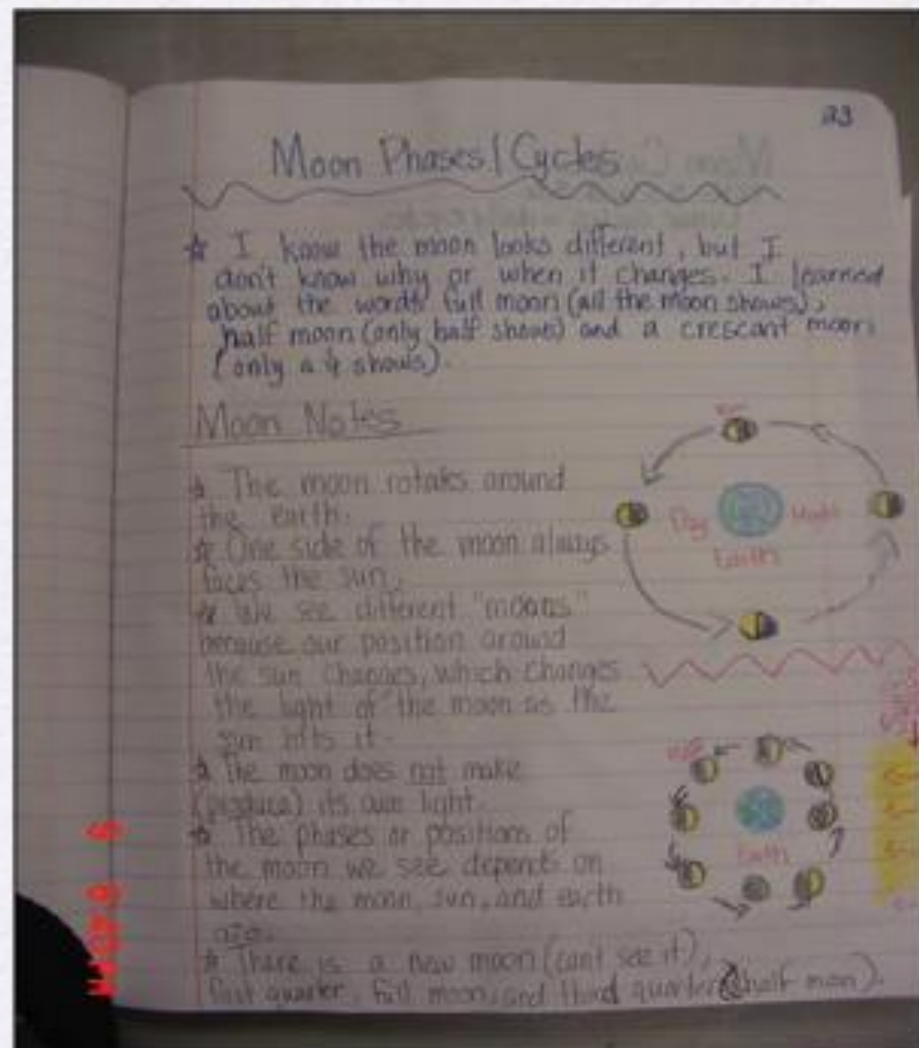 23
Moon Phases/Cycles
☆ I know the moon looks different, but I
don't know why or when it changes. I learned
about the words full moon (all the moon shows),
half moon (only half shows) and a crescant moon
(only a ¼ shows).
Moon Notes
☆ The moon rotates around
the earth.
☆ One side of the moon always
faces the sun.
☆ We see different "moons"
because our position around
the sun changes, which changes
the light of the moon as the
sun hits it.
☆ The moon does not make
(produce) its own light.
☆ The phases or positions of
the moon we see depends on
where the moon, sun, and earth
are.
☆ There is a new moon (cant see it),
first quarter, full moon, and third quarter (half moon).
Day
Night
Earth
Earth